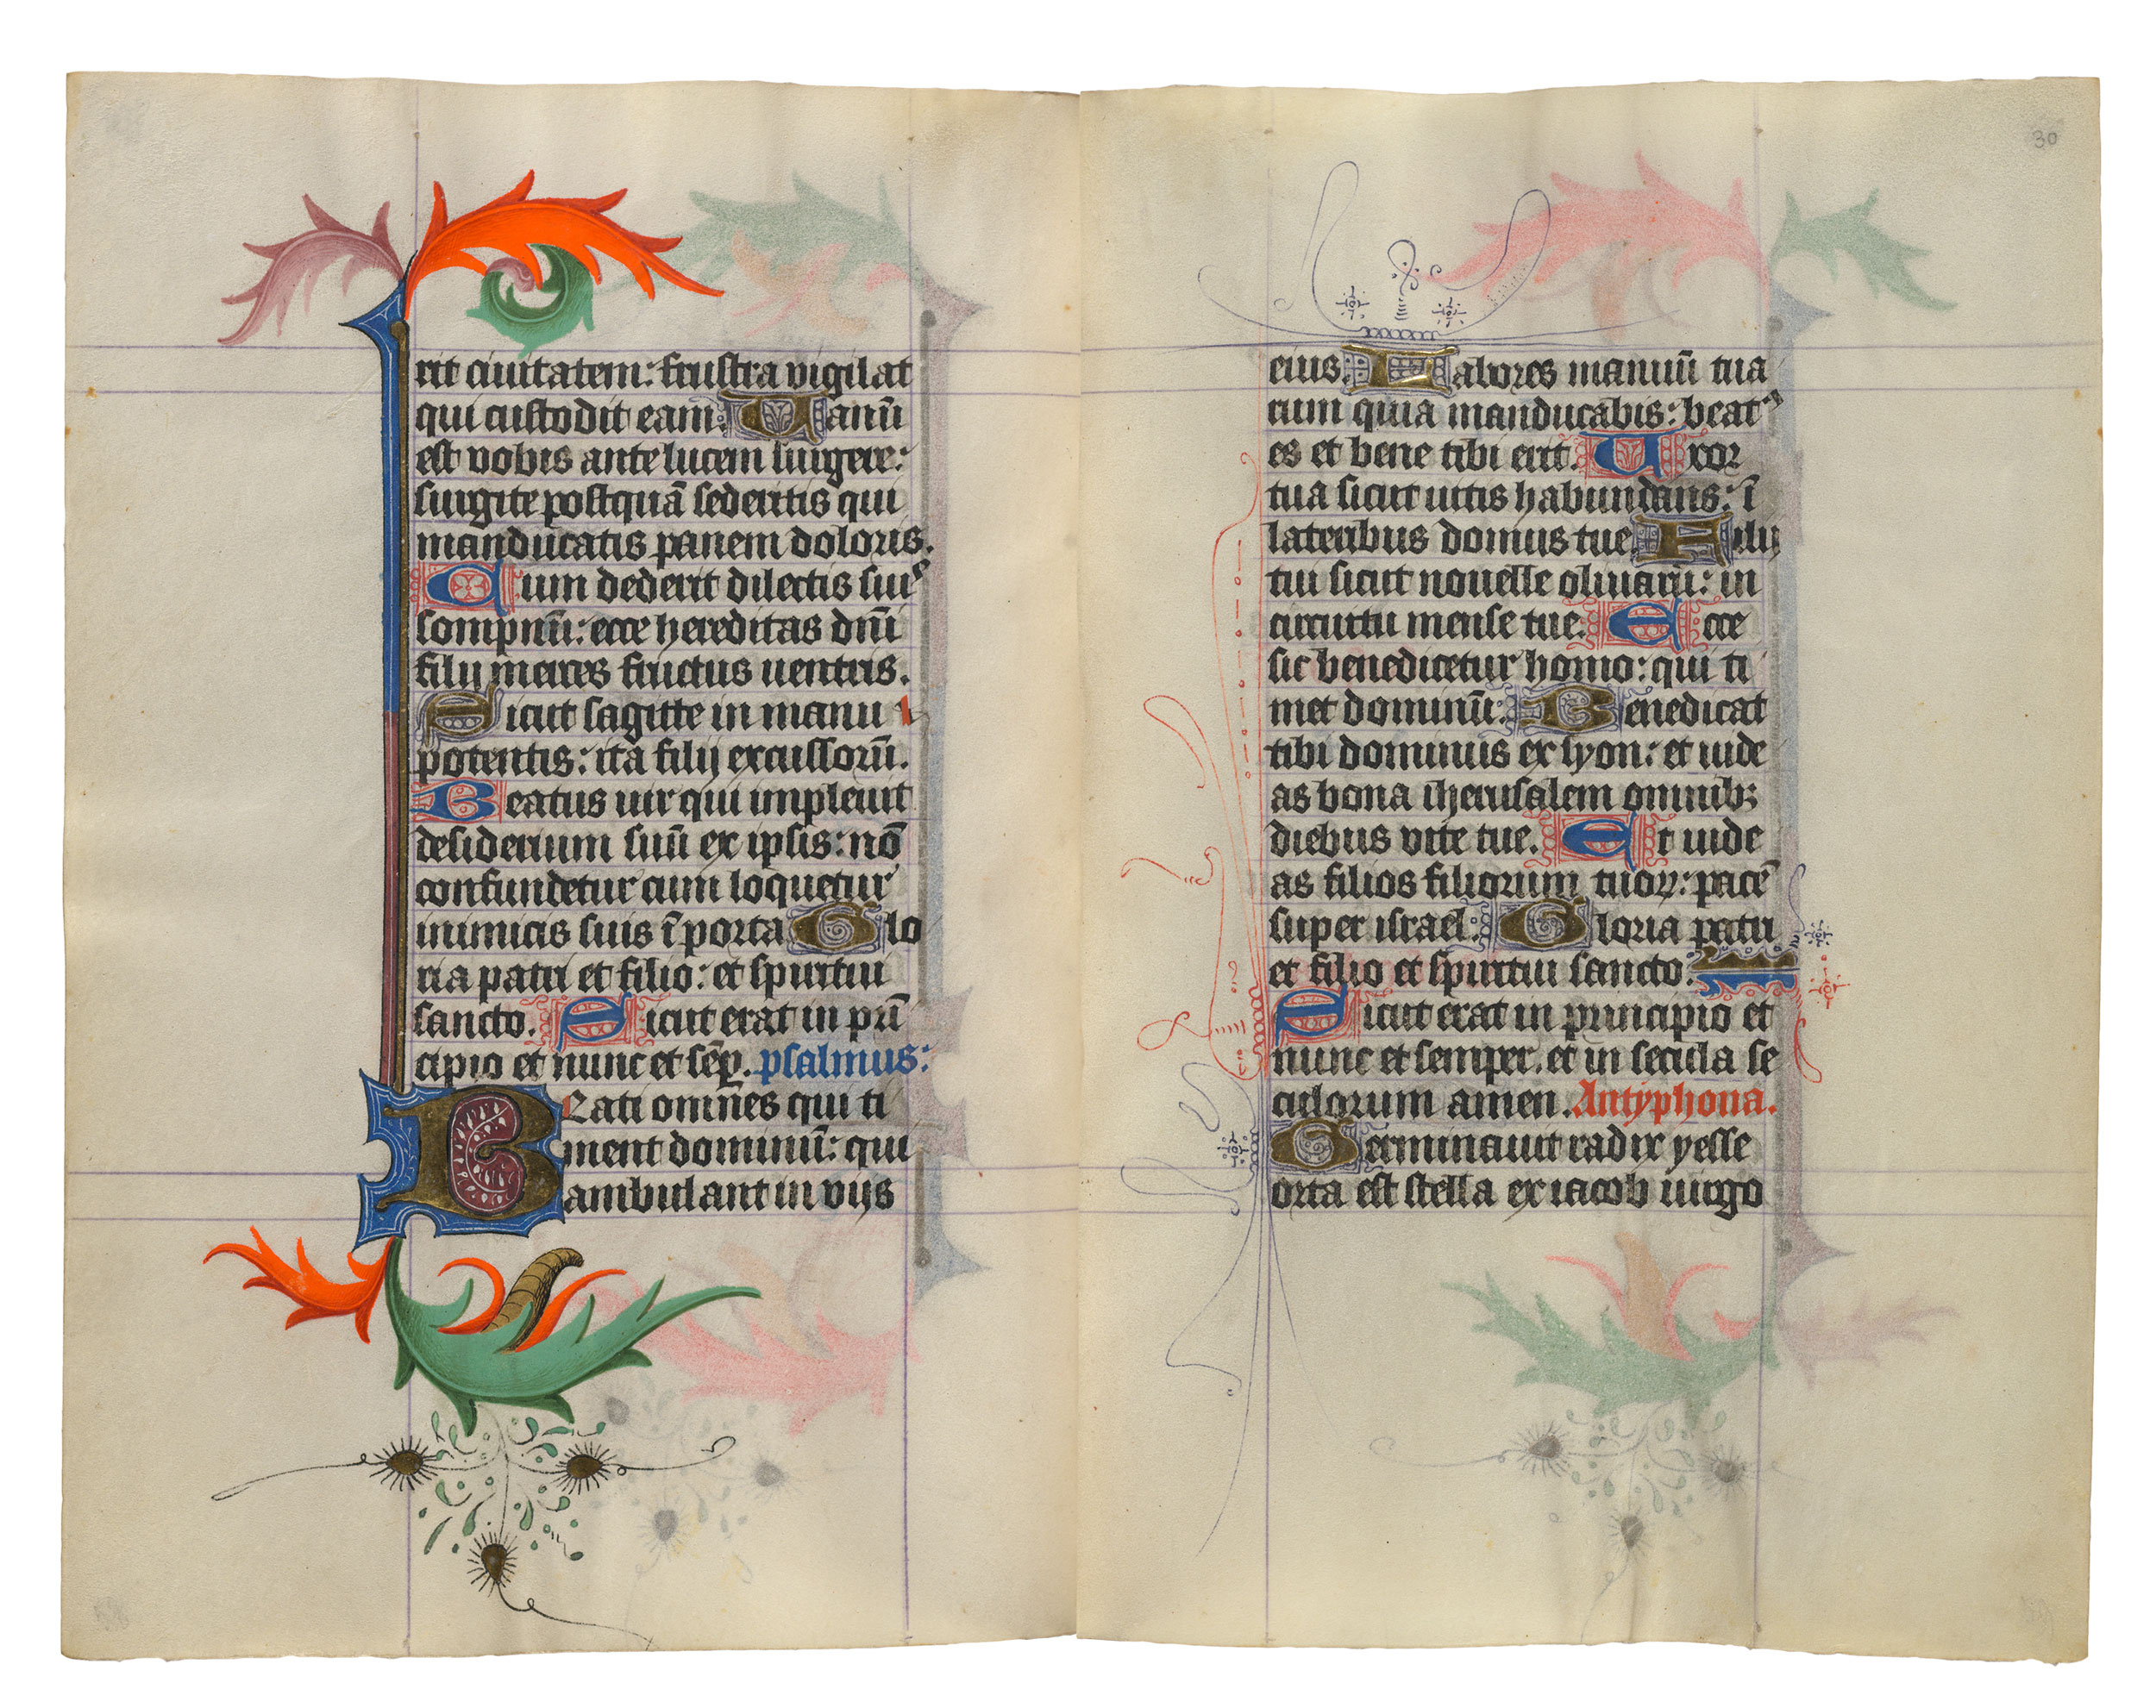 rit ciuitatem: frustra vigilat
qui custodit eam. Uanū
est vobis ante lucem surgere:
surgite postquā sederitis qui
manducatis panem doloris.
Cum dederit dilectis suis
sompnū: ecce hereditas dn̄i
filij merces fructus uentris.
Sicut sagitte in manu
potentis: ita filij excussorū.
Beatus uir qui impleuit
desiderium suū ex ipsis: nō
confundetur cum loquetur
inimicis suis ī porta Glo
ria patri et filio: et spiritui
sancto. Sicut erat in prī
cipio et nunc et sēp. psalmus:
Beati omnes qui ti
ment dominū: qui
ambulant in vijs
30
eius. Labores manuū tua
rum quia manducabis: beatꝰ
es et bene tibi erit. Uxor
tua sicut uitis habundans: ī
lateribus domus tue. Filij
tui sicut nouelle oliuarū: in
circuitu mense tue. Ecce
sic benedicetur homo: qui ti
met dominū. Benedicat
tibi dominus ex syon: et uide
as bona iherusalem omnibꝫ
diebus vite tue. Et uide
as filios filiorum tuoꝝ: pacē
super israel. Gloria patri
et filio et spiritui sancto.
Sicut erat in principio et
nunc et semper. et in secula se
culorum amen. Antyphona.
Germinauit radix yesse
orta est stella ex iacob uirgo